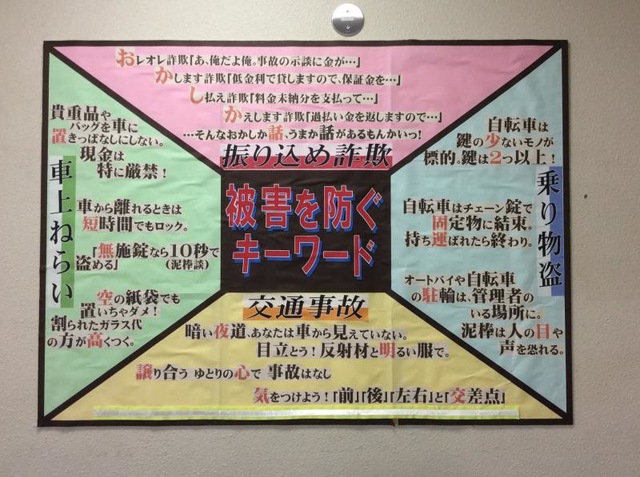 おレオレ詐欺「あ、俺だよ俺。事故の示談に金が…」
かします詐欺「低金利で貸しますので、保証金を…」
し払え詐欺「料金未納分を支払って…」
かえします詐欺「過払い金を返しますので…」
…そんなおかしか話、うまか話があるもんかいっ!
振り込め詐欺
被害を防ぐ
キーワード
車上ねらい
貴重品や
バッグを車に
置きっぱなしにしない。
現金は
特に厳禁!
車から離れるときは
短時間でもロック。
「無施錠なら10秒で
盗める」(泥棒談)
空の紙袋でも
置いちゃダメ!
割られたガラス代
の方が高くつく。
乗り物盗
自転車は
鍵の少ないモノが
標的。鍵は2つ以上!
自転車はチェーン錠で
固定物に結束。
持ち運ばれたら終わり。
オートバイや自転車
の駐輪は、管理者の
いる場所に。
泥棒は人の目や
声を恐れる。
交通事故
暗い夜道、あなたは車から見えていない。
目立とう!反射材と明るい服で。
譲り合う ゆとりの心で 事故はなし
気をつけよう!「前」「後」「左右」と「交差点」